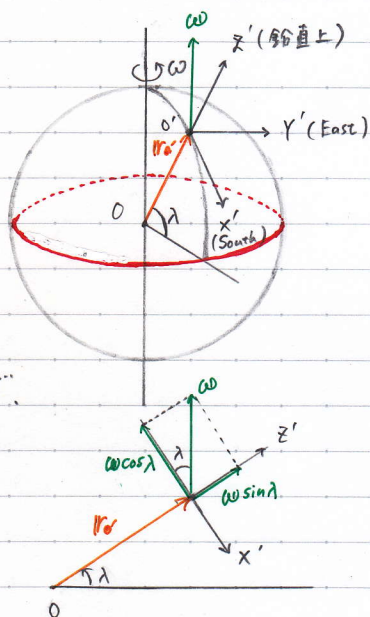 ω
Z'(鉛直上)
ω
O'
Y'(East)
r₀
O
λ
X'
(South)
ω
ωcosλ
λ
Z'
ωsinλ
r₀
X'
λ
O